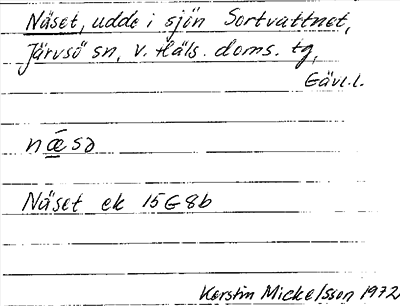 Näset, udde i sjön Sortvattnet,
Järvsö sn, V. Häls. doms. tg,
Gävl.l.
nǽ̲sə
Näset ek 15G8b
Kerstin Mickelsson 1972